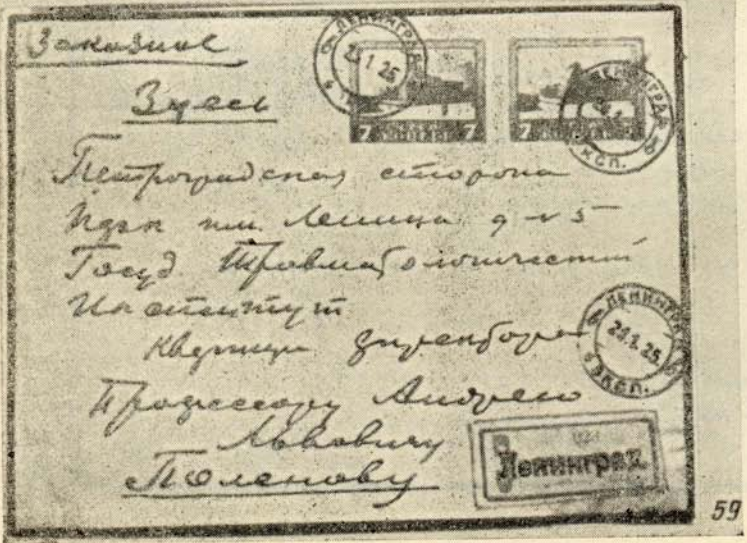 Заказное
Здесь
ЛЕНИНГРАД
23.1.25
7 7
7 7
ЛЕНИНГРАД
ЭКСП.
Петроградская сторона
Парк им. Ленина д N 5
Госуд Травматологический
Институт
квартира директора
ЛЕНИНГРАД
23.1.25
ЭКСП.
Профессору Андрею
Львовичу
Поленову
Ленинград.
59